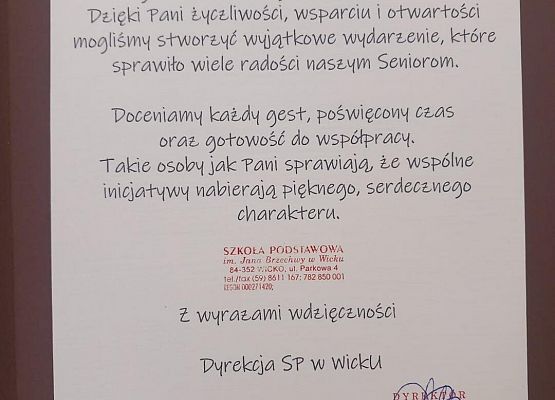 Dzięki Pani życzliwości, wsparciu i otwartości
mogliśmy stworzyć wyjątkowe wydarzenie, które
sprawiło wiele radości naszym Seniorom.
Doceniamy każdy gest, poświęcony czas
oraz gotowość do współpracy.
Takie osoby jak Pani sprawiają, że wspólne
inicjatywy nabierają pięknego, serdecznego
charakteru.
SZKOŁA PODSTAWOWA
im. Jana Brzechwy w Wicku
84-352 WICKO, ul. Parkowa 4
tel./fax (59) 8611 167; 782 850 001
REGON 000271420;
Z wyrazami wdzięczności
Dyrekcja SP w WickU
DYREKTOR